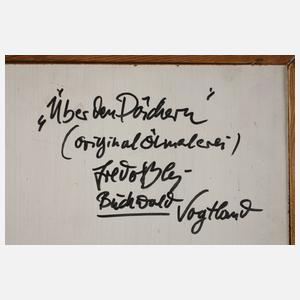 „Über den Dächern“
(original Ölmalerei)
Fredo Bley
Buchwald Vogtland